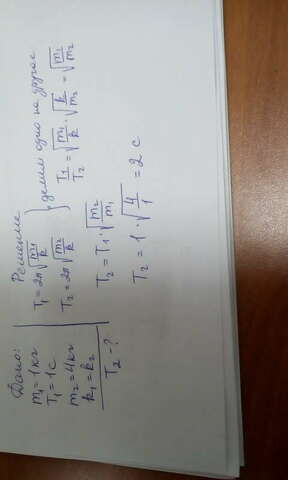 Дано:
m₁ = 1 кг
T₁ = 1 с
m₂ = 4 кг
k₁ = k₂
T₂ - ?
Решение
T₁ = 2π√(m₁/k)
T₂ = 2π√(m₂/k)
} делим одно на другое
T₁/T₂ = √(m₁/k) · √(k/m₂) = √(m₁/m₂)
T₂ = T₁ · √(m₂/m₁)
T₂ = 1 · √(4/1) = 2 с